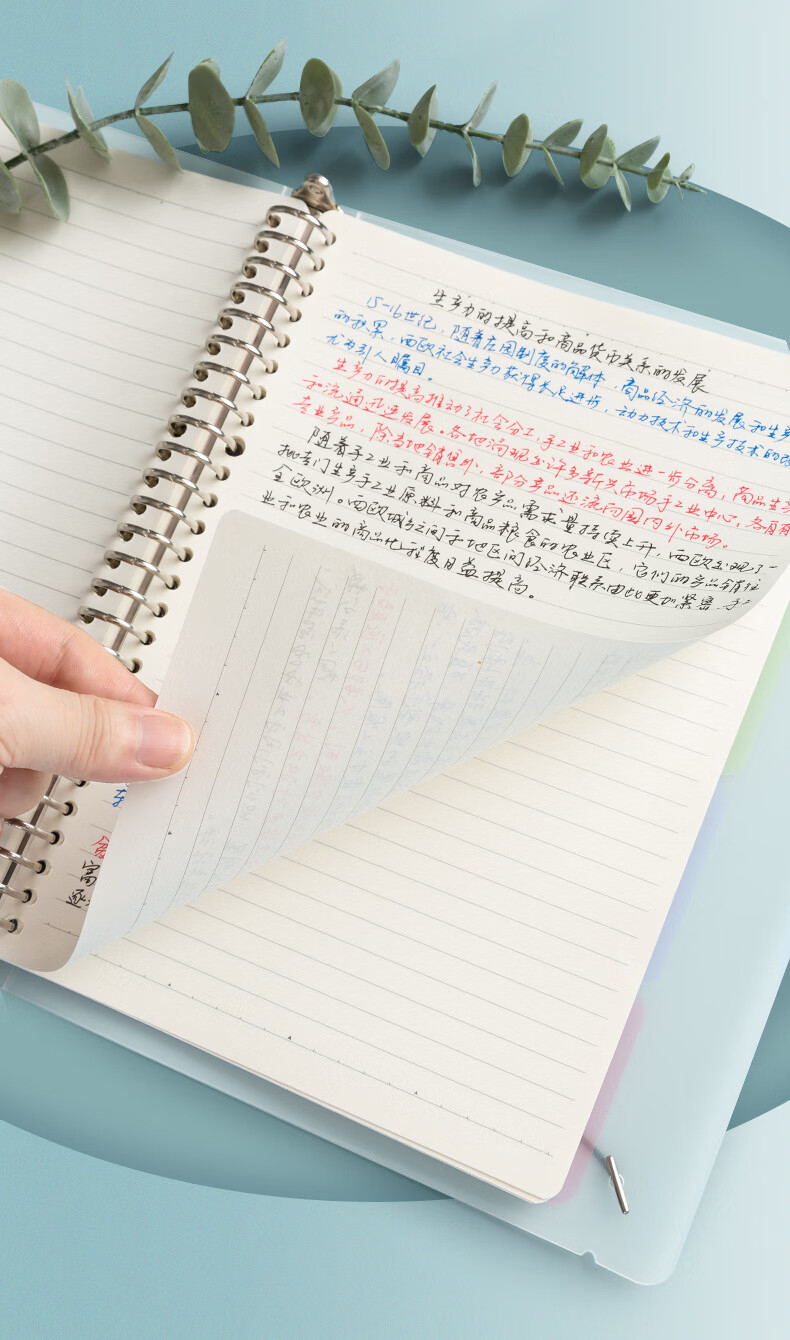 生产力的提高和商品货币关系的发展
15-16世纪，随着庄园制度的解体，商品经济的发展和生产
的积累，西欧社会生产力获得长足进步，动力技术和生产技术的改
尤为引人瞩目。
生产力的提高推动了社会分工，手工业和农业进一步分离，商品生
和流通迅速发展。各地涌现出许多新兴市场手工业中心，各有
专业产品，除当地销售外，部分产品还流向国内外市场。
随着手工业和商品对农产品需求量持续上升，西欧出现了一
批专门生产手工业原料和商品粮食的农业区，它们的产品销往
全欧洲。西欧城乡之间于地区间经济联系由此更加紧密，手工
业和农业的商品化程度日益提高。
富
逐